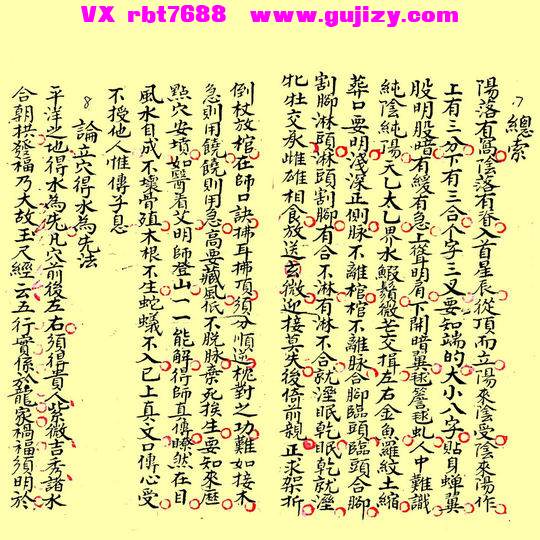 VX rbt7688 www.gujizy.com
7 總索
陽落有窩陰落有脊入首星辰從頂而立陽來陰受陰來陽作
上有三分下有三合个字三叉要知端的大小八字貼身蟬翼
股明股暗有緩有急上聳明肩下開暗翼毬簷毬虬人中難識
純陰純陽天乙太乙界水蝦鬚微芒交揖左右金魚羅紋土縮
葬口要明淺深正側脉不離棺棺不離脉合腳臨頭臨頭合腳
割腳淋頭淋頭割腳有合不淋有淋不合就溼眠乾眠乾就溼
牝牡交承雌雄相食放送玄微迎接莫失後倚前親正求架折
倒杖放棺在師口訣拂耳拂頂須分順逆枕對之功難如接木
急則用饒饒則用急高要藏風低不脫脉棄死挨生要知來歷
點穴安墳如醫看艾明師登山一一能解得師真傳瞭然在目
風水自成不壞骨殖木根不生蛇蟻不入已上真文口傳心受
不授他人惟傳子息
8 論立穴得水為先法
平洋之地得水為先凡穴前後左右須得貴人紫微吉秀諸水
合朝拱發福乃大故玉尺經云五行實係於龍家禍福須明於